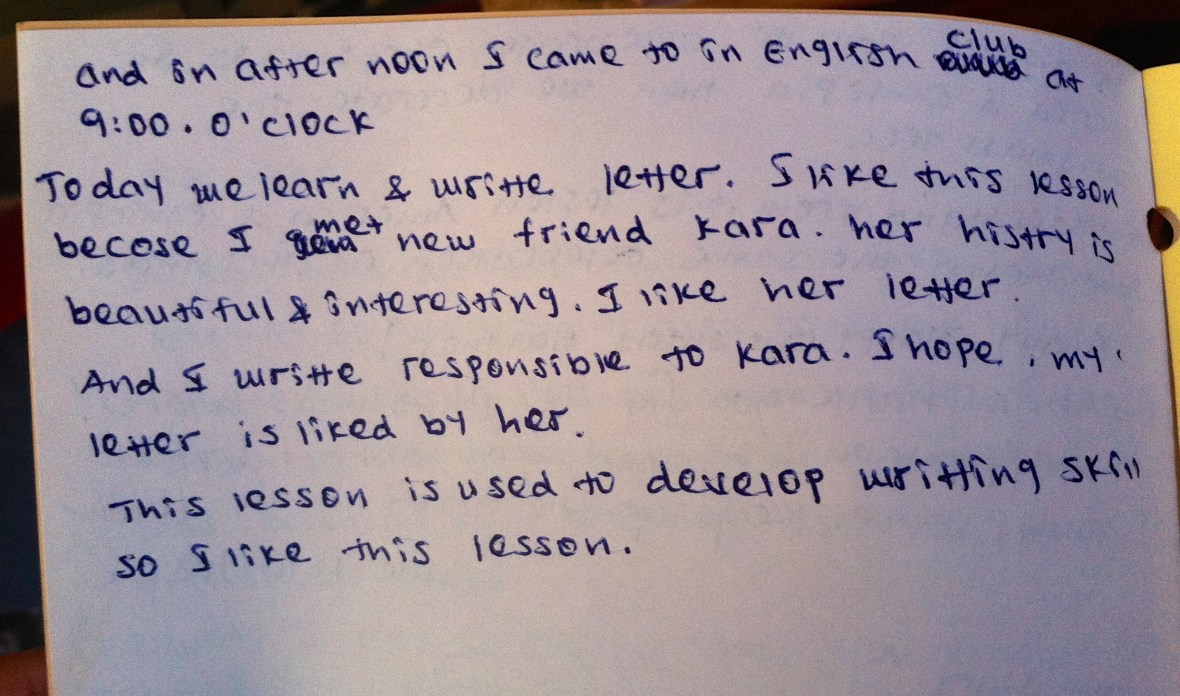 and in after noon I came to in English club at
9:00. O'clock
Today we learn & writte letter. I like this lesson
becose I met new friend Kara. her histry is
beautiful & interesting. I like her letter.
And I writte responsible to Kara. I hope. my
letter is liked by her.
This lesson is used to develop writting skill
so I like this lesson.